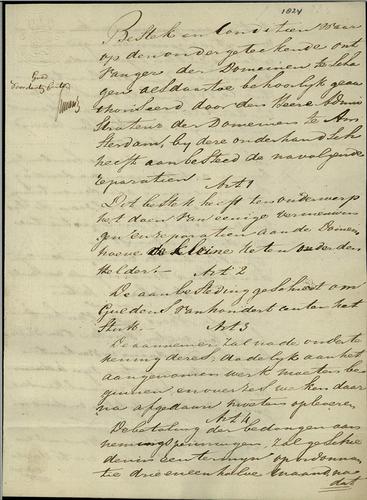 1824
Bestek en Conditien Waar
op den ondergeteekende ont
Vanger der Domeinen te Scha
gen als daartoe behoorlijk geau
thoriseerd door den Heere Admi
Strateur der Domeinen te Am
Sterdam, by deze onderhandsch
heeft aanbesteed de navolgende
reparatien — Art 1
Dit bestek heeft ten onderwerp
het doen van eenige vernieuwin
gen en reparatien aan de Domein
hoeve de kleine Keten onder den
Helder. — Art 2
De aanbesteding geschiedt om
Guldens van honderd centen het
Stuk. Art 3
De aannemer zal na de onderte
kening dezes dadelijk aan het
aangenomen werk moeten be
ginnen en over zes weken daar
na afgedaan moeten opleveren
Art 4
De betaling der bedongen aan
nemingspenningen, zal geschie
den in een termyn op ordonnan
tie drie en een halve maand, na
dat